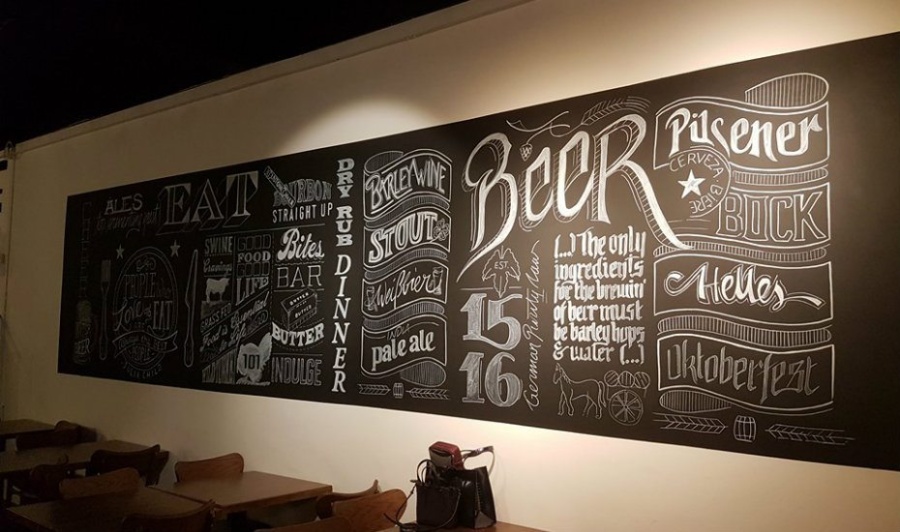 ALES
EAT
PEOPLE
Love
EAT
SWINE
Cravings
GRASS FED
GOOD
FOOD
GOOD
LIFE
101
BOURBON
STRAIGHT UP
Bites
BAR
BUTTER
INDULGE
DRY RUB DINNER
BARLEY-WINE
STOUT
Weißbier
INDIA
pale ale
BeeR
EST.
15
16
German Purity Law
(...) The only
ingredients
for the brewin'
of beer must
be barley, hops
& water (...)
Pilsener
CERVEZA BIÈRE
BOCK
Helles
Oktoberfest